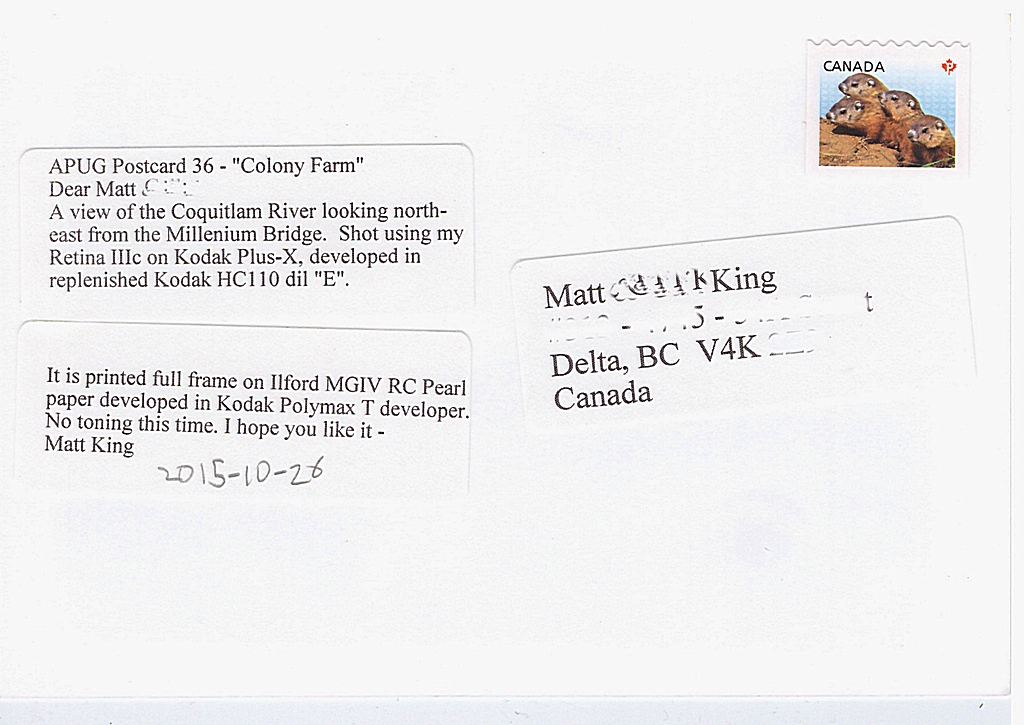 CANADA
P
APUG Postcard 36 - "Colony Farm"
Dear Matt
A view of the Coquitlam River looking north-
east from the Millenium Bridge. Shot using my
Retina IIIc on Kodak Plus-X, developed in
replenished Kodak HC110 dil "E".
It is printed full frame on Ilford MGIV RC Pearl
paper developed in Kodak Polymax T developer.
No toning this time. I hope you like it -
Matt King
2015-10-26
Matt King
Delta, BC V4K
Canada